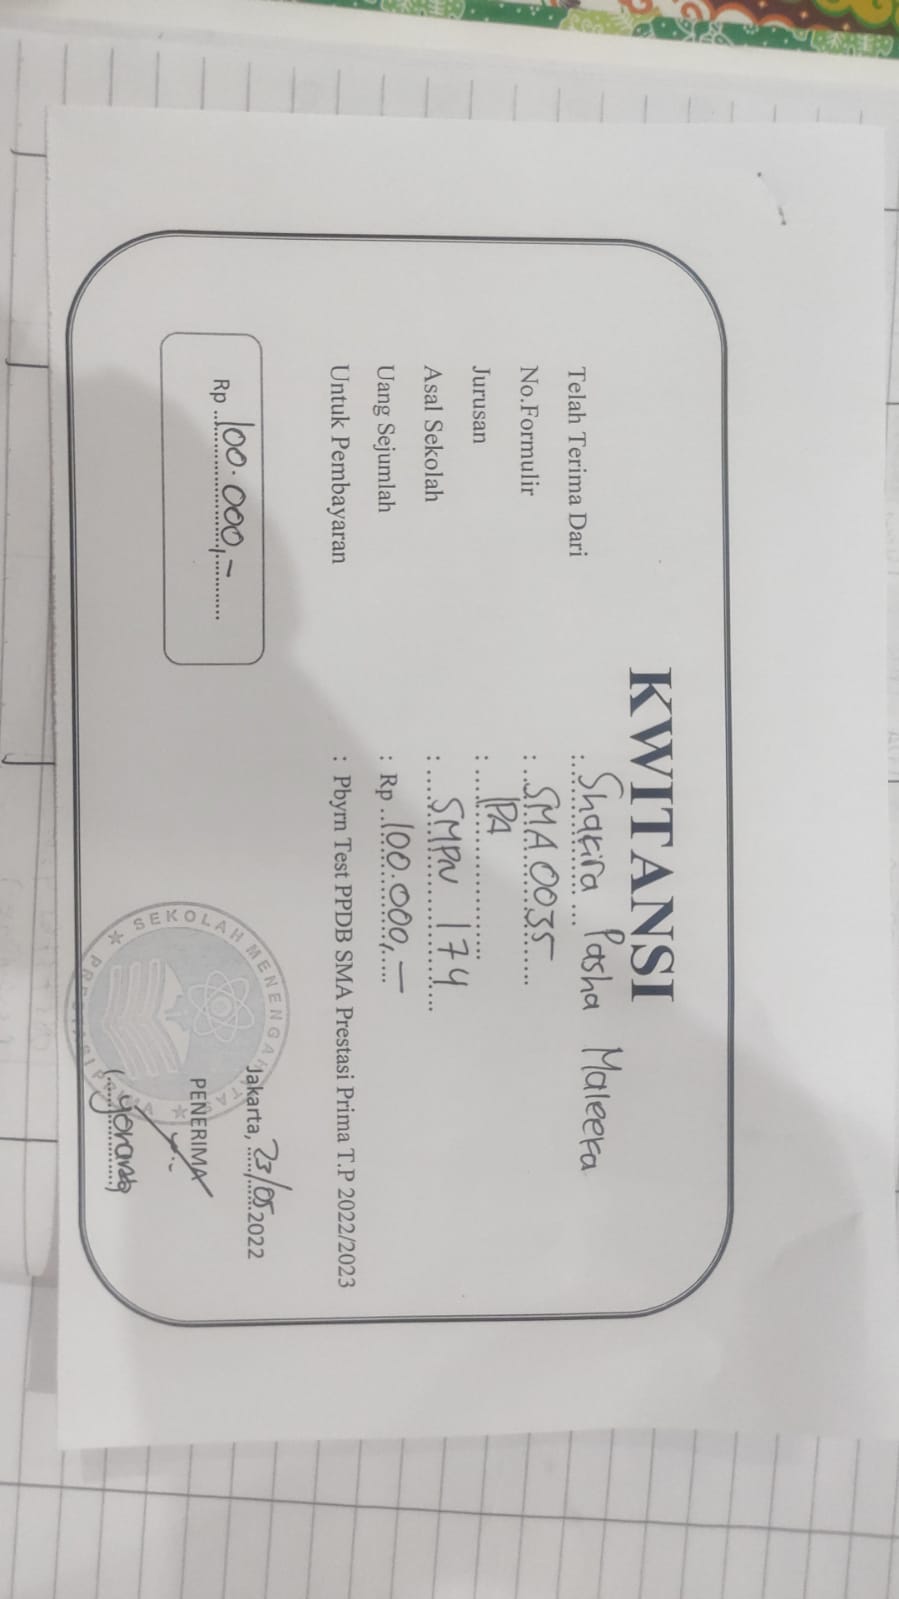 KWITANSI
Telah Terima Dari : Shakira Pasha Maleeka
No.Formulir : SMA 0035
Jurusan : IPA
Asal Sekolah : SMPN 174
Uang Sejumlah : Rp 100.000,-
Untuk Pembayaran : Pbym Test PPDB SMA Prestasi Prima T.P 2022/2023
Jakarta, 23/05 2022
Rp 100.000,-
PENERIMA
SEKOLAH MENENGAH